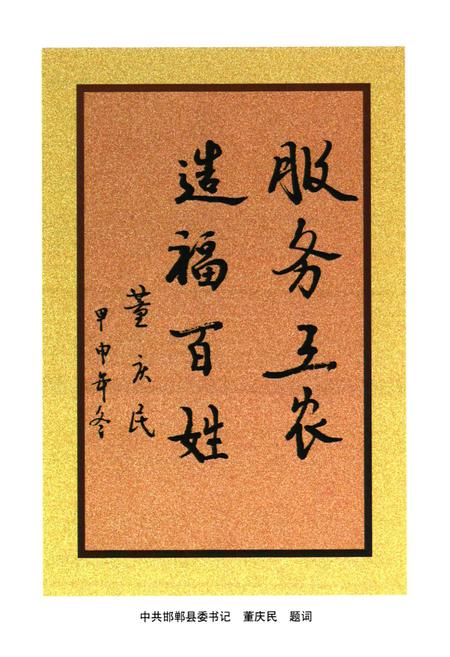 服务工农
造福百姓
董庆民
甲申年冬
中共邯郸县委书记 董庆民 题词